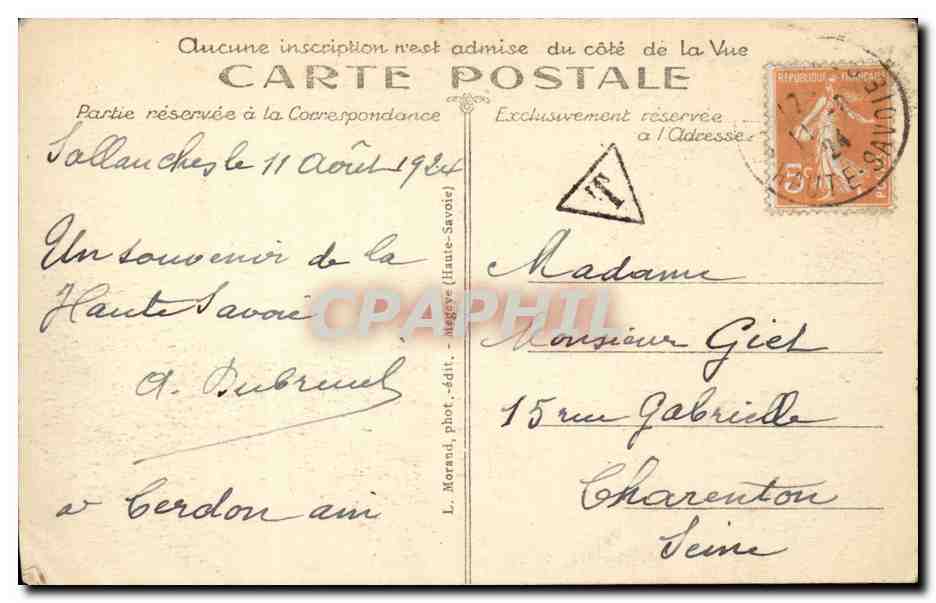 Aucune inscription n'est admise du côté de la Vue
CARTE POSTALE
Partie réservée à la Correspondance
Exclusivement réservée
à l'Adresse
Sallanches le 11 Août 1924
Un souvenir de la
Haute Savoie
A. Dubreuil
à Cerdon ain
L. Morand, phot.-édit. - Megève (Haute-Savoie)
CPAPHIL
RÉPUBLIQUE FRANÇAISE
5c
24
HAUTE-SAVOIE
T
Madame
Monsieur Giet
15 rue Gabrielle
Charenton
Seine